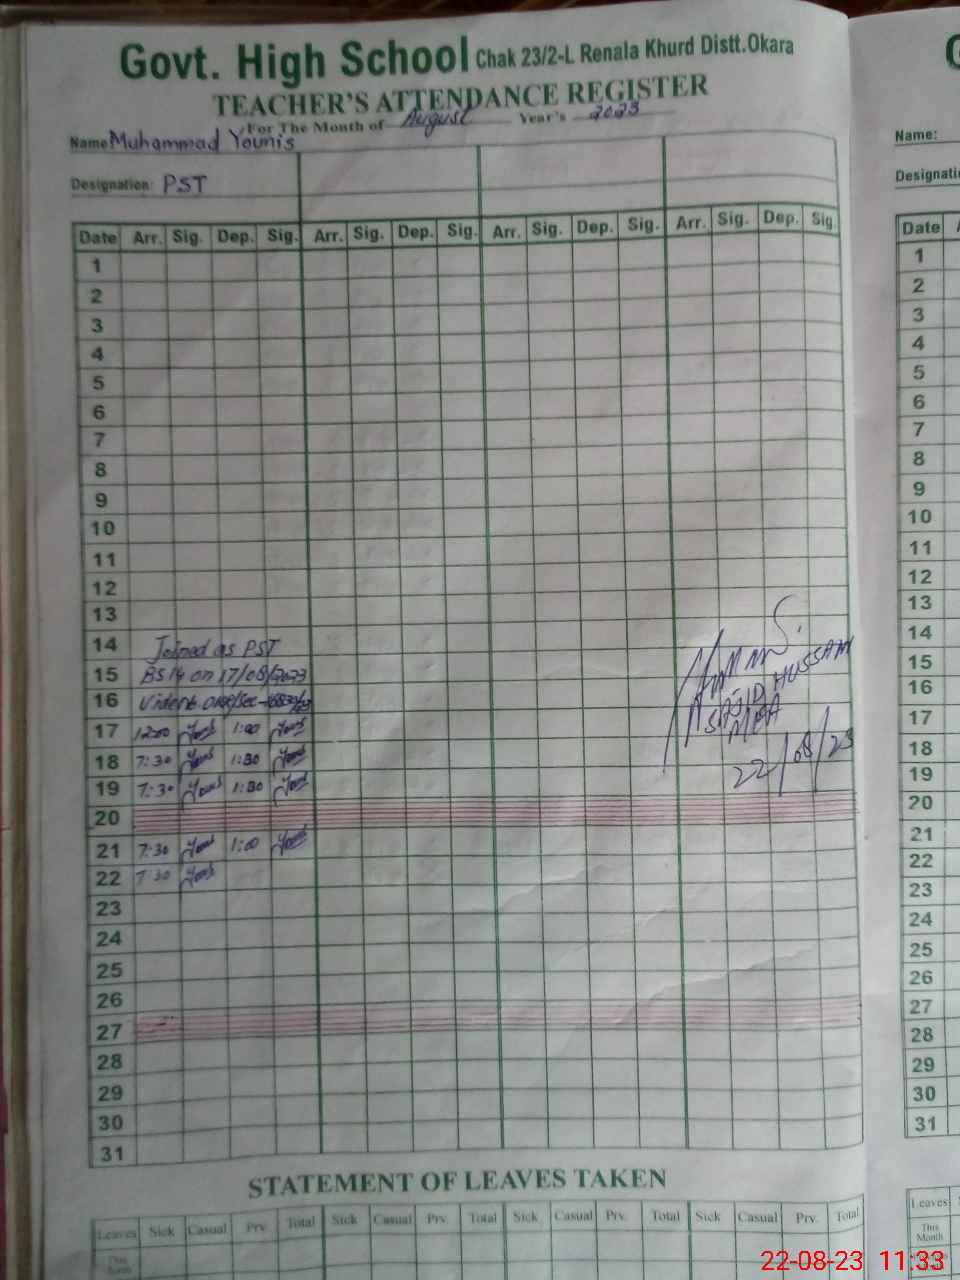 Govt. High School Chak 23/2-L Renala Khurd Distt.Okara
TEACHER'S ATTENDANCE REGISTER
For The Month of August Year's 2023
Name Muhammad Younis
Designation: PST
Date Arr. Sig. Dep. Sig. Arr. Sig. Dep. Sig. Arr. Sig. Dep. Sig. Arr. Sig. Dep. Sig.
1
2
3
4
5
6
7
8
9
10
11
12
13
14 Joined as PST
15 BS14 on 17/08/2023
16
17 12:00 1:00
18 7:30 1:30
19 7:30 1:30
20
21 7:30 1:00
22 7:30
23
24
25
26
27
28
29
30
31
SAJID HUSSAIN
MEA
22/08/23
STATEMENT OF LEAVES TAKEN
Leaves Sick Casual Prv. Total Sick Casual Prv. Total Sick Casual Prv. Total Sick Casual Prv. Total
This
Month
Name:
Date
1
2
3
4
5
6
7
8
9
10
11
12
13
14
15
16
17
18
19
20
21
22
23
24
25
26
27
28
29
30
31
Leaves
This
Month
22-08-23 11:33